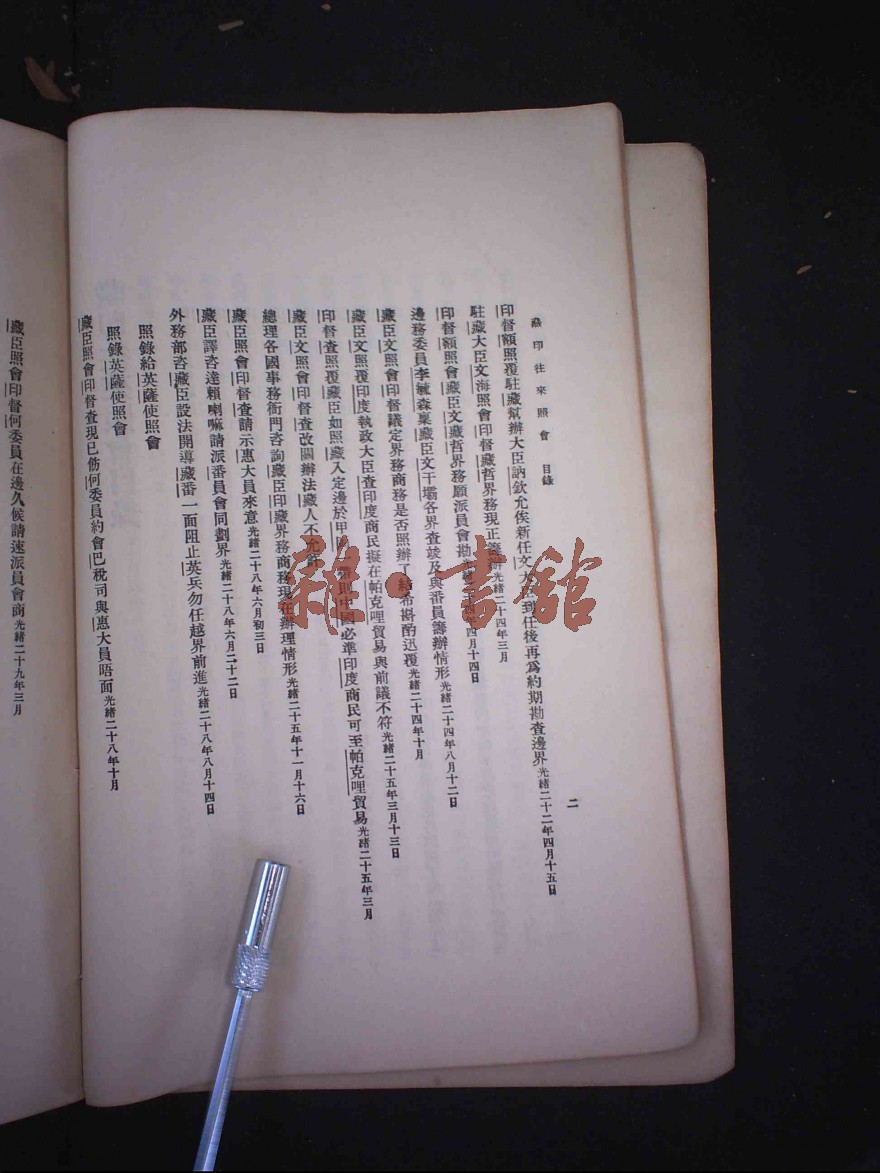 藏印往來照會 目錄
二
印督額照覆駐藏幫辦大臣訥欽允俟新任文大臣到任後再爲約期勘查邊界光緒二十二年四月十五日
駐藏大臣文海照會印督藏哲界務現正籌辦光緒二十四年三月
印督額照會藏臣文藏哲界務願派員會勘光緒二十四年四月十四日
邊務委員李毓森稟藏臣文干壩各界查竣及與番員籌辦情形光緒二十四年八月十二日
藏臣文照會印督議定界務商務是否照辦了結希斟酌迅覆光緒二十四年十月
藏臣文照覆印度執政大臣查印度商民擬在帕克哩貿易與前議不符光緒二十五年三月十三日
印督查照覆藏臣如照藏入定邊於甲 則中國必準印度商民可至帕克哩貿易光緒二十五年三月
藏臣文照會印督查改關辦法藏人不允許
總理各國事務衙門咨詢藏臣印藏界務商務現在辦理情形光緒二十五年十一月十六日
藏臣照會印督查請示惠大員來意光緒二十八年六月初三日
藏臣譯咨達賴喇嘛請派番員會同劃界光緒二十八年六月二十二日
外務部咨藏臣設法開導藏番一面阻止英兵勿任越界前進光緒二十八年八月十四日
照錄給英薩使照會
照錄英薩使照會
藏臣照會印督查現已飭何委員約會巴稅司與惠大員晤面光緒二十八年十月
藏臣照會印督何委員在邊久候請速派員會商光緒二十九年三月
雜·書館